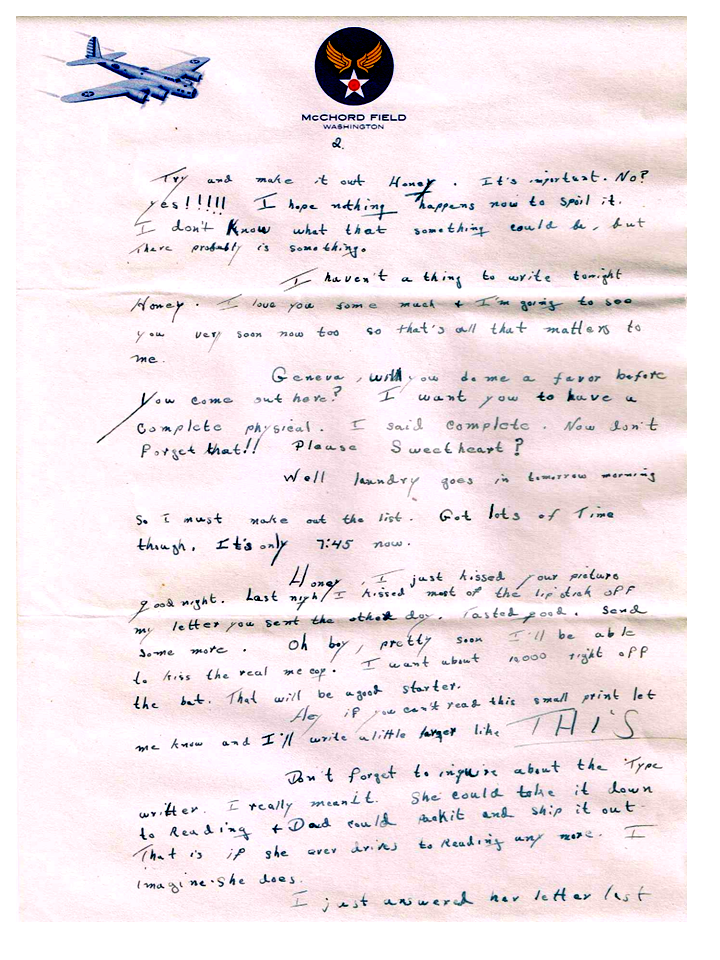 McCHORD FIELD
WASHINGTON
2.
Try and make it out Honey. It's important. No?
yes!!!!! I hope nothing happens now to spoil it.
I don't know what that something could be, but
there probably is something.
I haven't a thing to write tonight
Honey. I love you some much + I'm going to see
you very soon now too so that's all that matters to
me.
Geneva, will you do me a favor before
you come out here? I want you to have a
complete physical. I said complete. Now don't
forget that!! Please Sweetheart?
Well laundry goes in tomorrow morning
So I must make out the list. Got lots of Time
though. It's only 7:45 now.
Honey, I just kissed your picture
good night. Last night I kissed most of the lipstick off
my letter you sent the other day. Tasted good. Send
some more. Oh boy, pretty soon I'll be able
to kiss the real me cop. I want about 10,000 right off
the bat. That will be a good starter.
Hey if you can't read this small print let
me know and I'll write a little larger like THIS
Don't forget to inquire about the Type
writter. I really meant it. She could take it down
to Reading + Dad could packit and ship it out.
That is if she ever drives to Reading any more. I
imagine she does.
I just answered her letter last